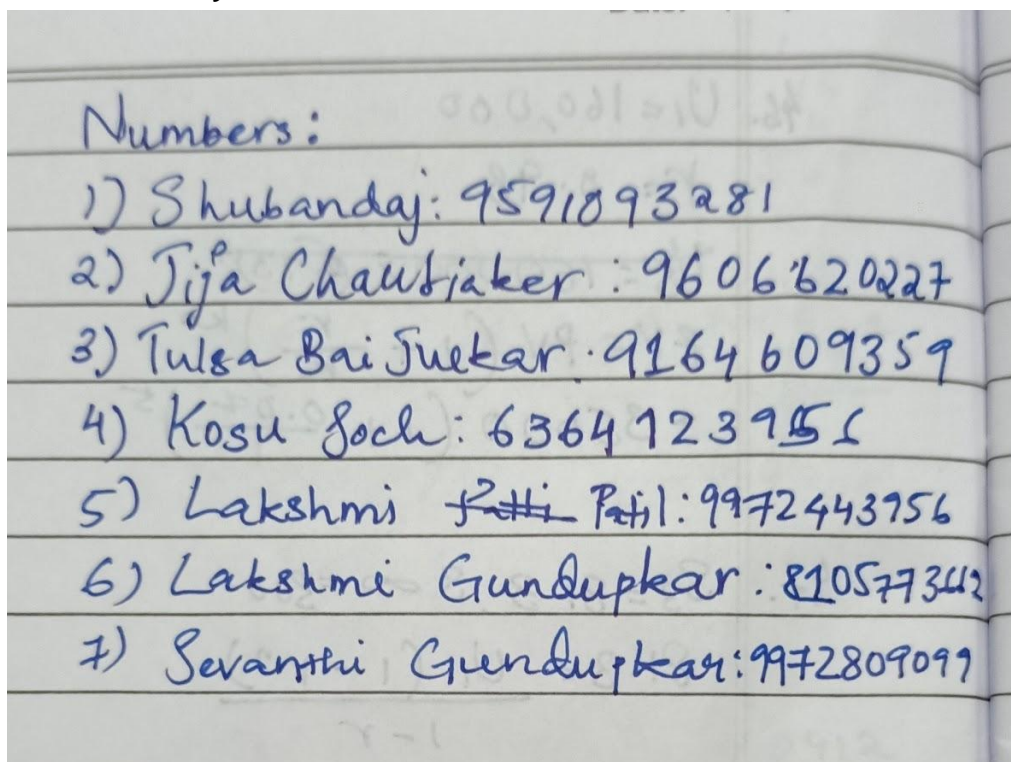 Numbers:
1) Shubandaj: 9591893281
2) Jija Chawtjaker : 9606620227
3) Tulsa Bai Juekar. 9164609359
4) Kosu Soch:
5) Lakshmi Patil: 9972443956
6) Lakshmi Gundupkar :
7) Sevanthi Gundupkar: 9972809099